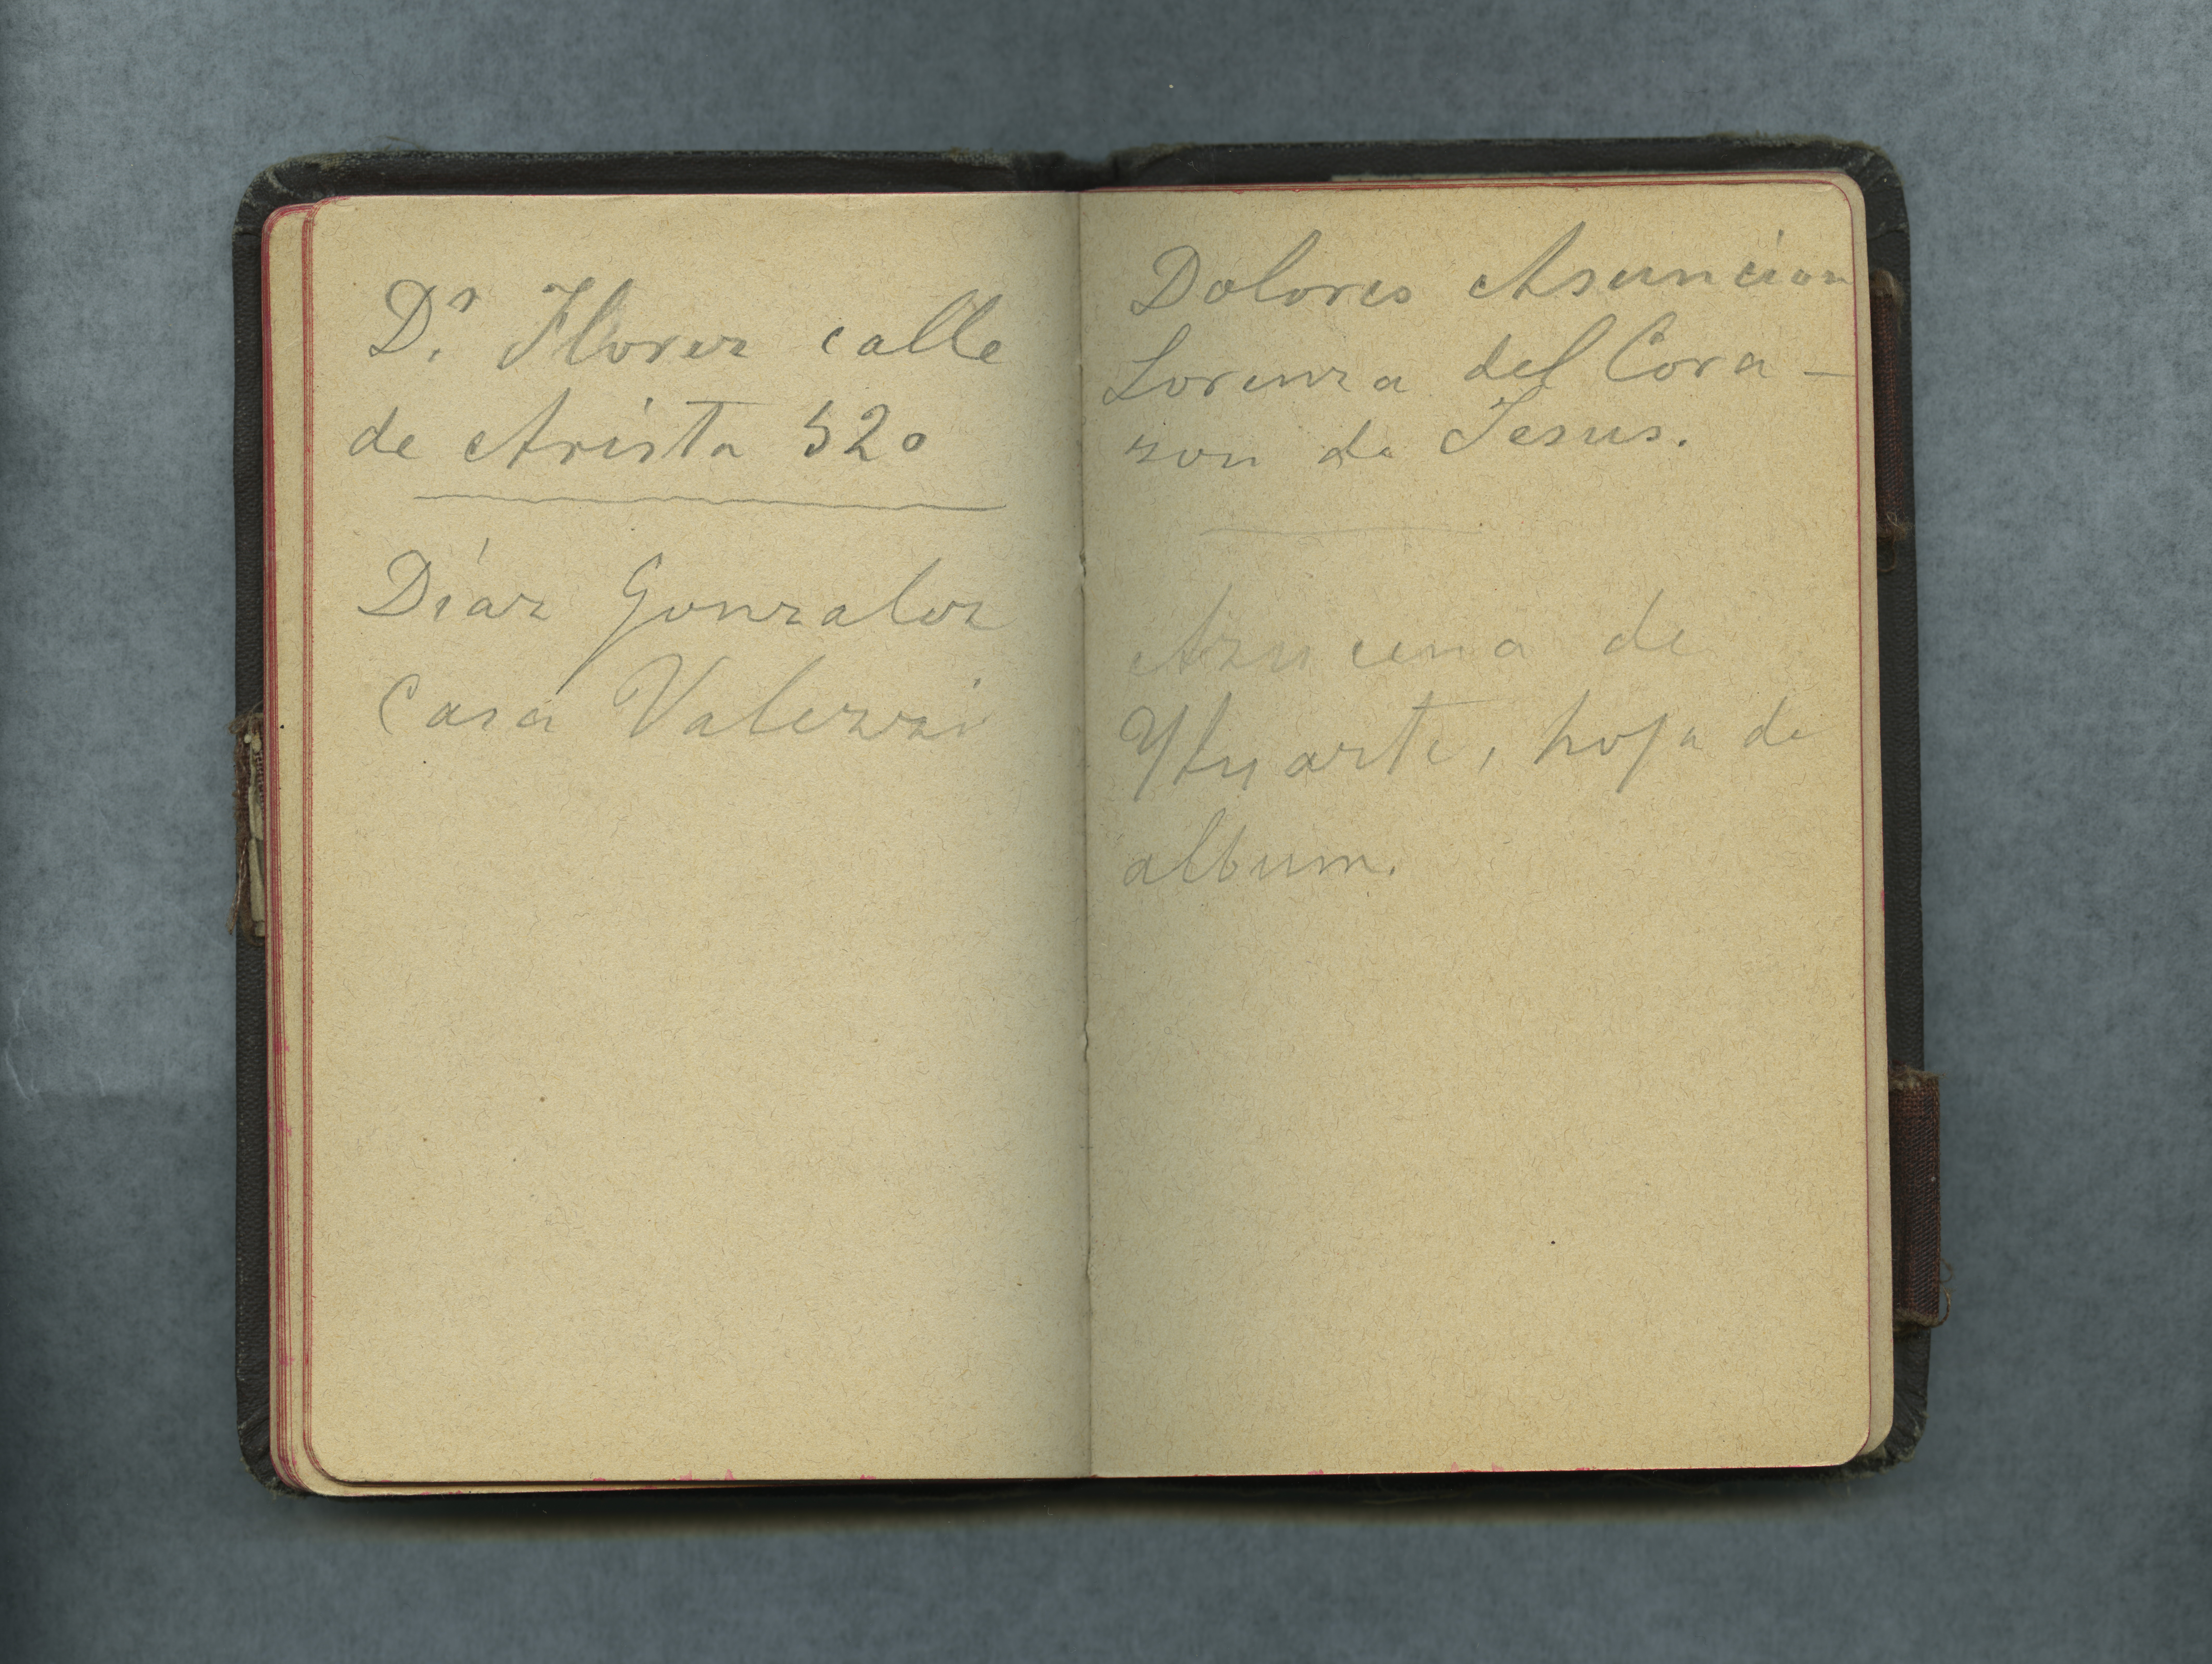 Dr. Flores calle
de Arista 520
Díaz Gonzalez
Casa Valezzi
Dolores Asuncion
Lorenza del Cora-
zon de Jesus.
Azucena de
Ytuarte, hoja de
album.